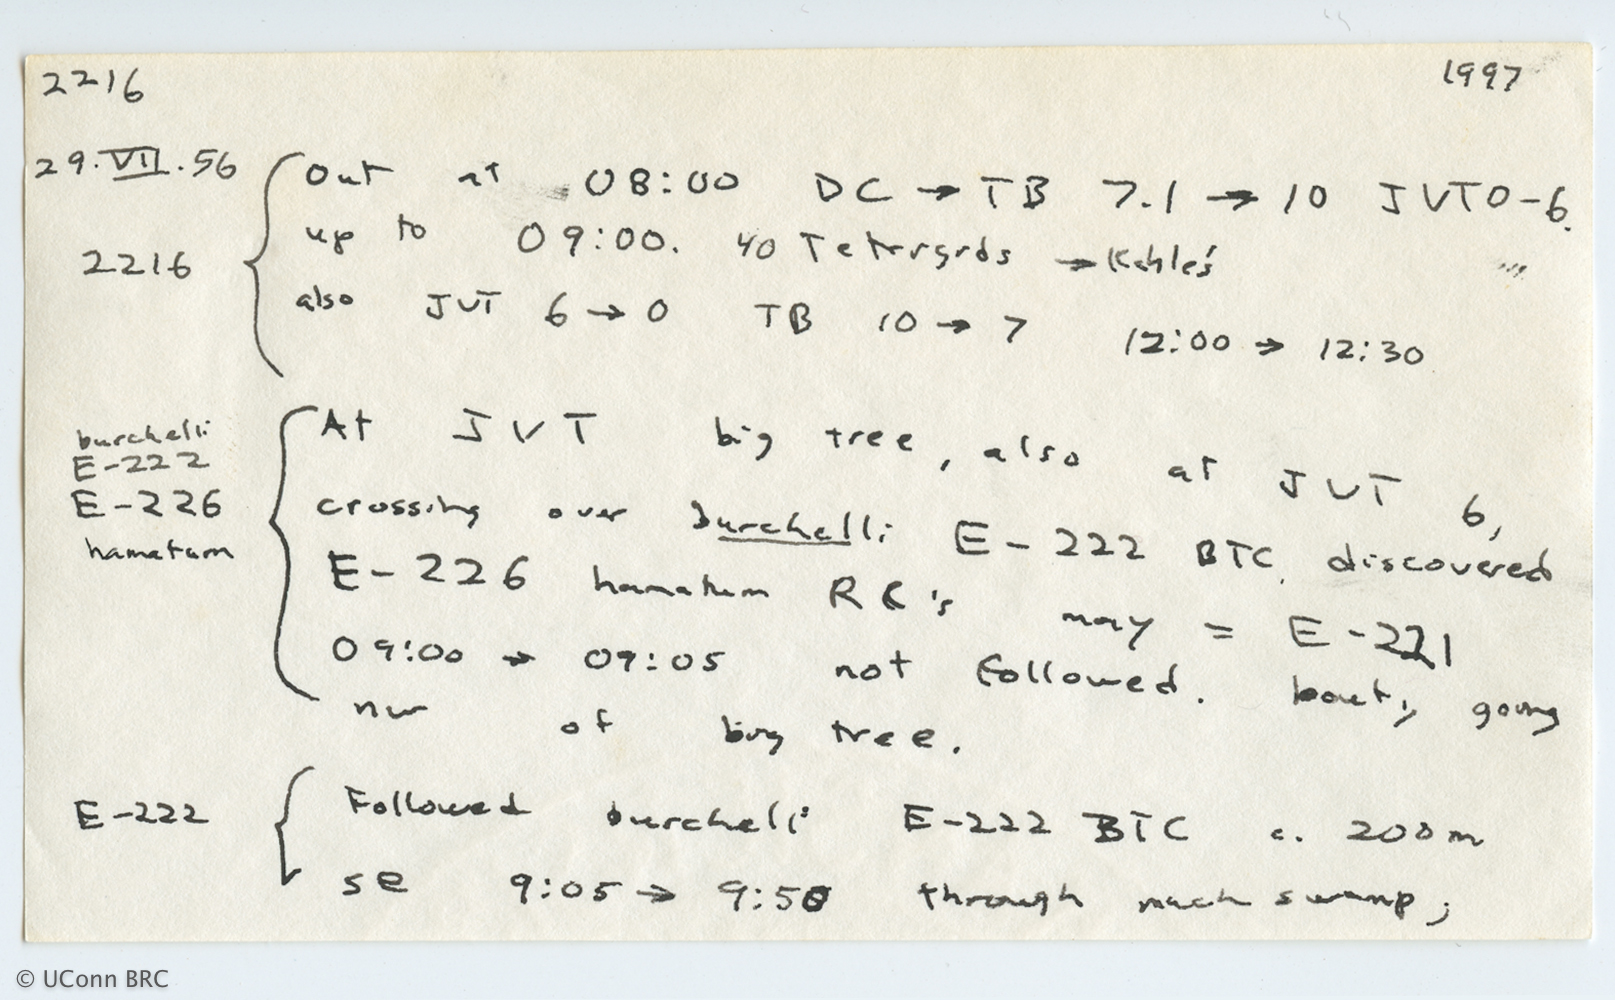 2216 1997
29.VII.56 Out at 08:00 DC → TB 7.1 → 10 JVT0-6.
up to 09:00. 40 Tetrigids →
2216
also JVT 6 → 0 TB 10 → 7 12:00 → 12:30
burchelli At JVT big tree, also at JVT 6,
E-222
E-226 crossing over burchelli E-222 BTC, discovered
hamatum E-226 hamatum RC's may = E-221
09:00 → 09:05 not followed. booty, going
nw of big tree.
E-222 Followed burchelli E-222 BTC c. 200m
se 9:05 → 9:50 through much swamp;
© UConn BRC